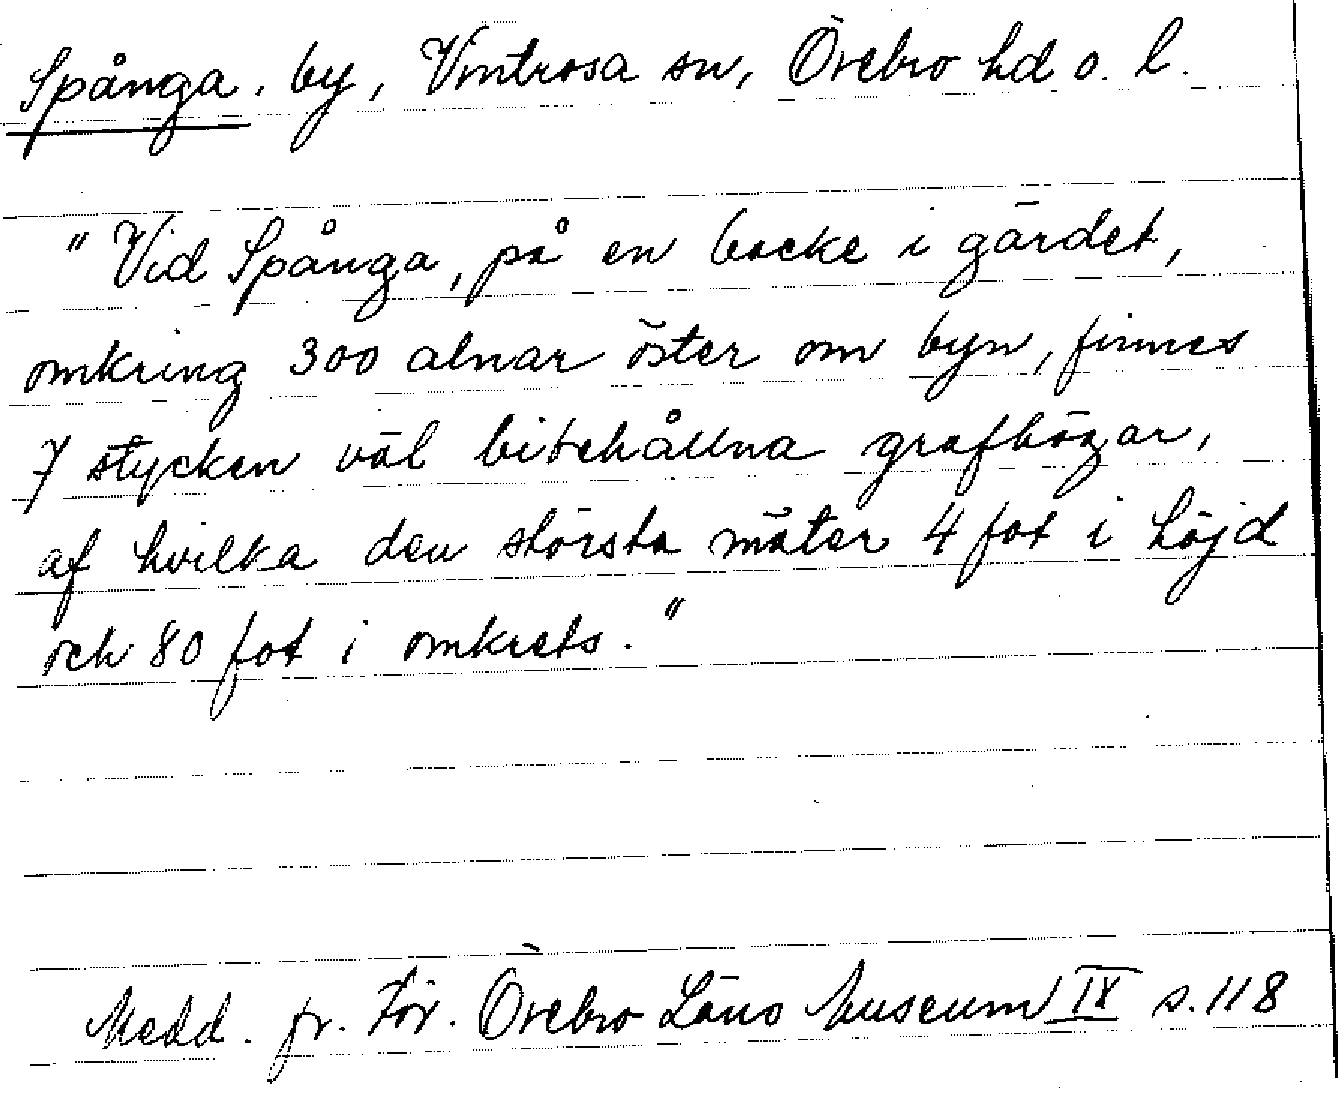 Spånga, by, Vintrosa sn, Örebro hd o. l.
"Vid Spånga, på en backe i gärdet,
omkring 300 alnar öster om byn, finnes
7 stycken väl bibehållna grafhögar,
af hvilka den största mäter 4 fot i höjd
och 80 fot i omkrets."
Medd. fr. För. Örebro Läns Museum IX s. 118